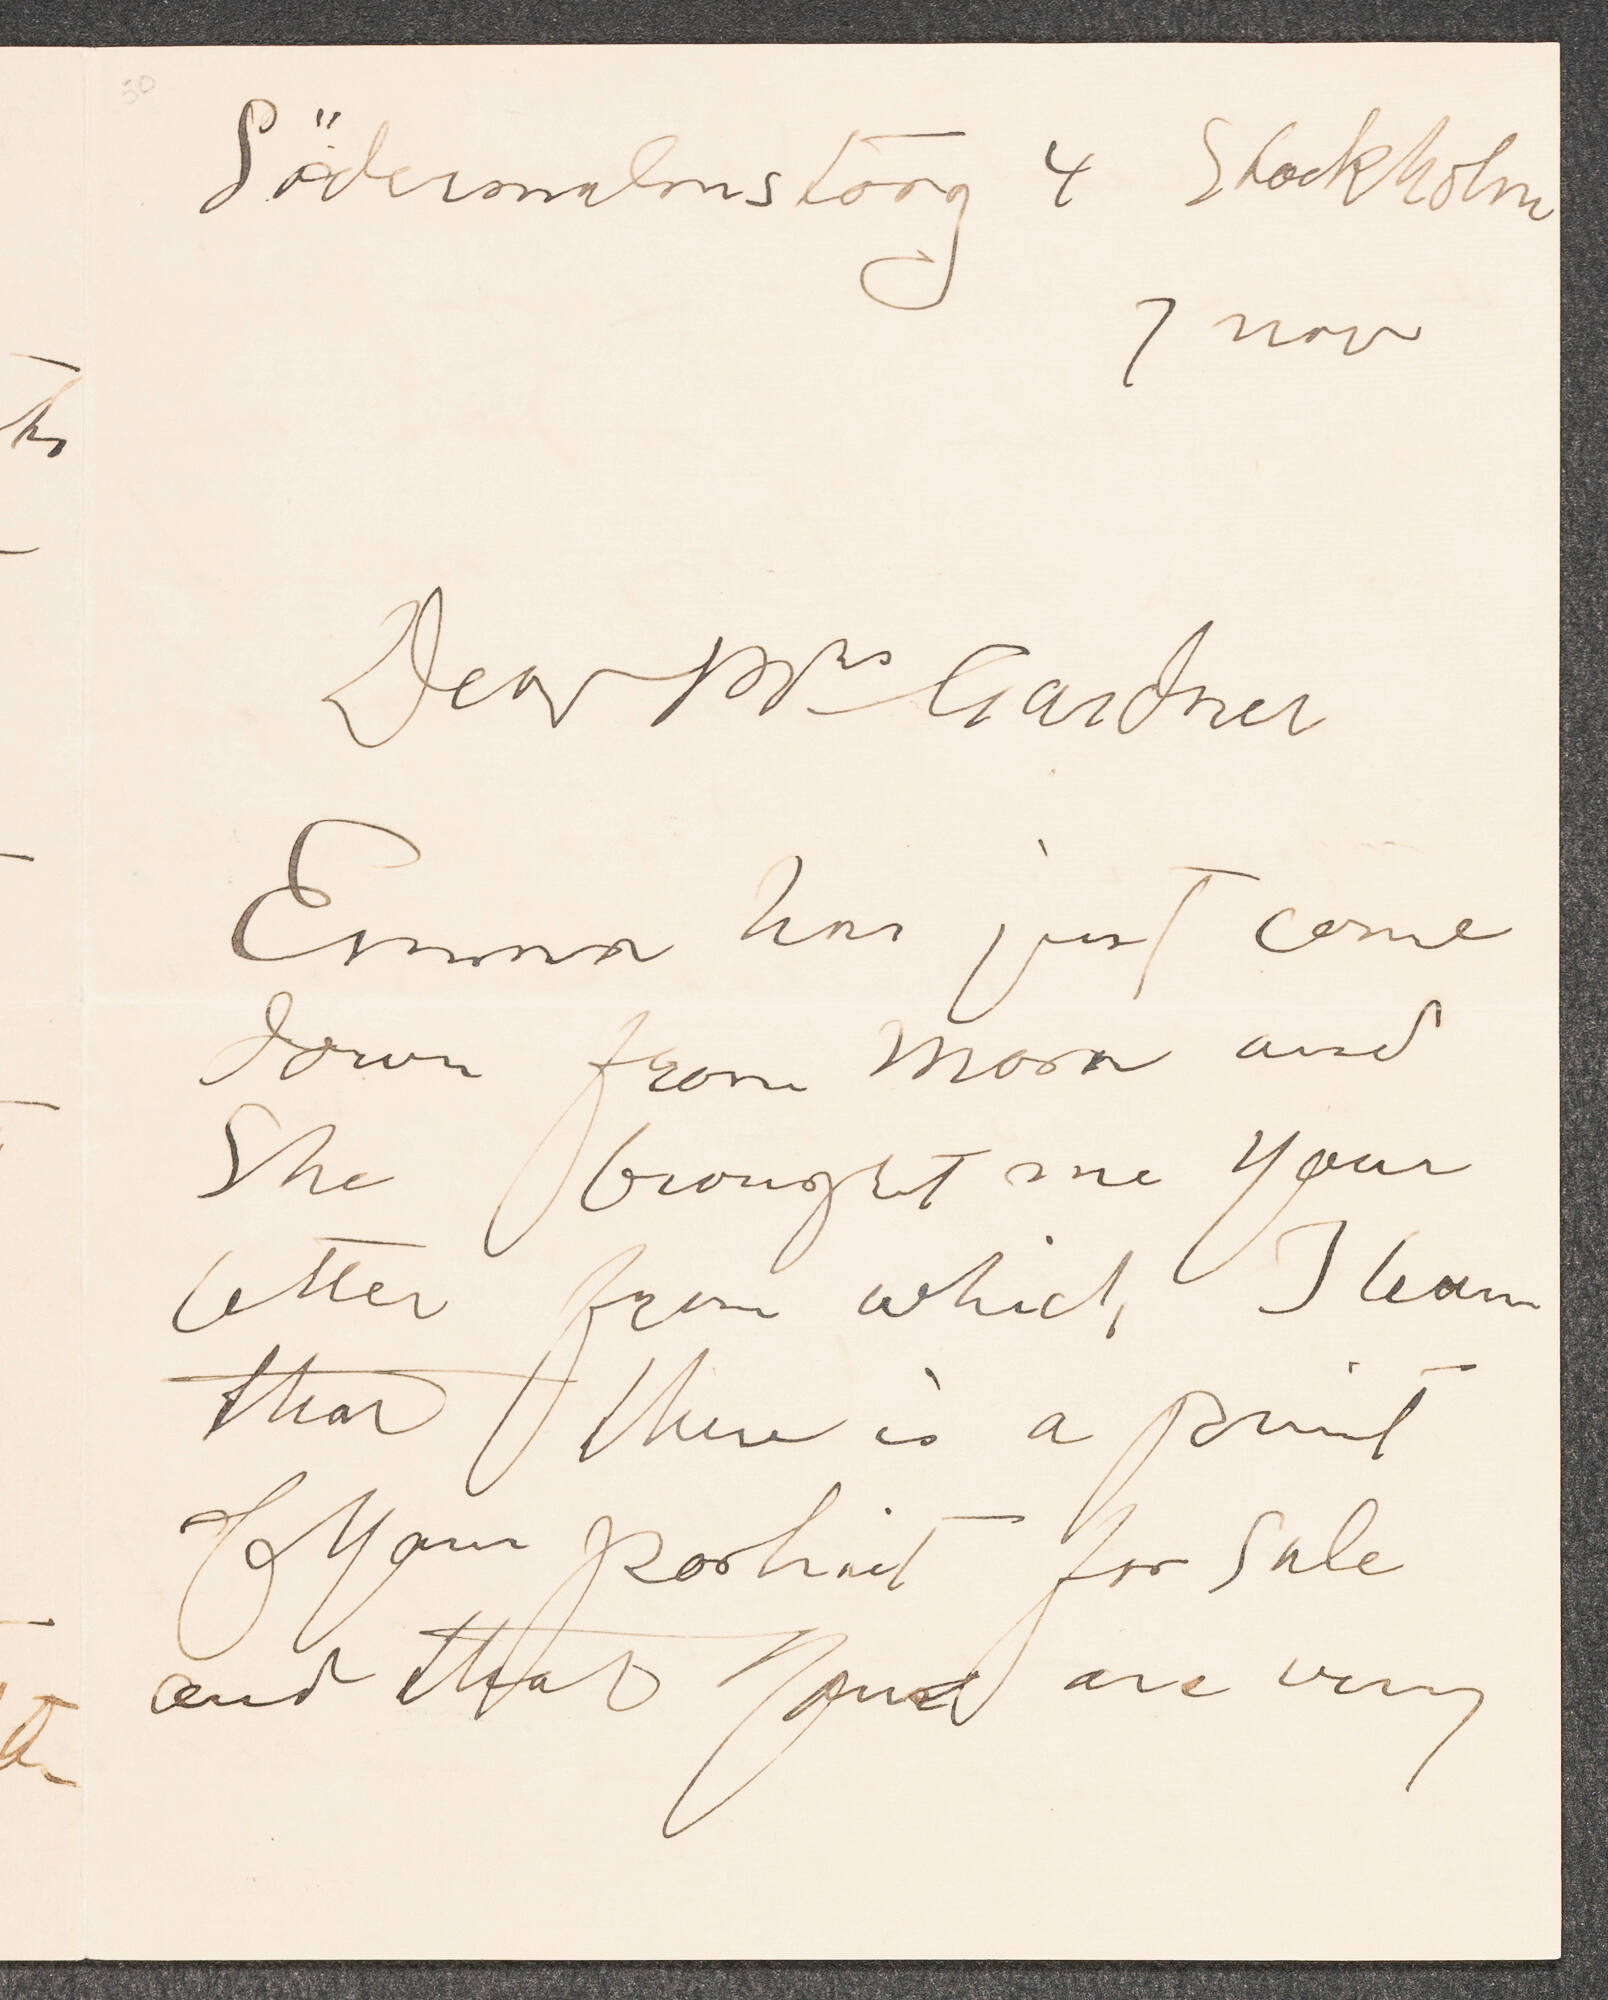 50
Södermalmstorg 4 Stockholm
7 nov
Dear Mrs Gardner
Emma has just come
down from Mora and
She brought me your
letter from which I learn
that there is a print
of your portrait for sale
and that you are very